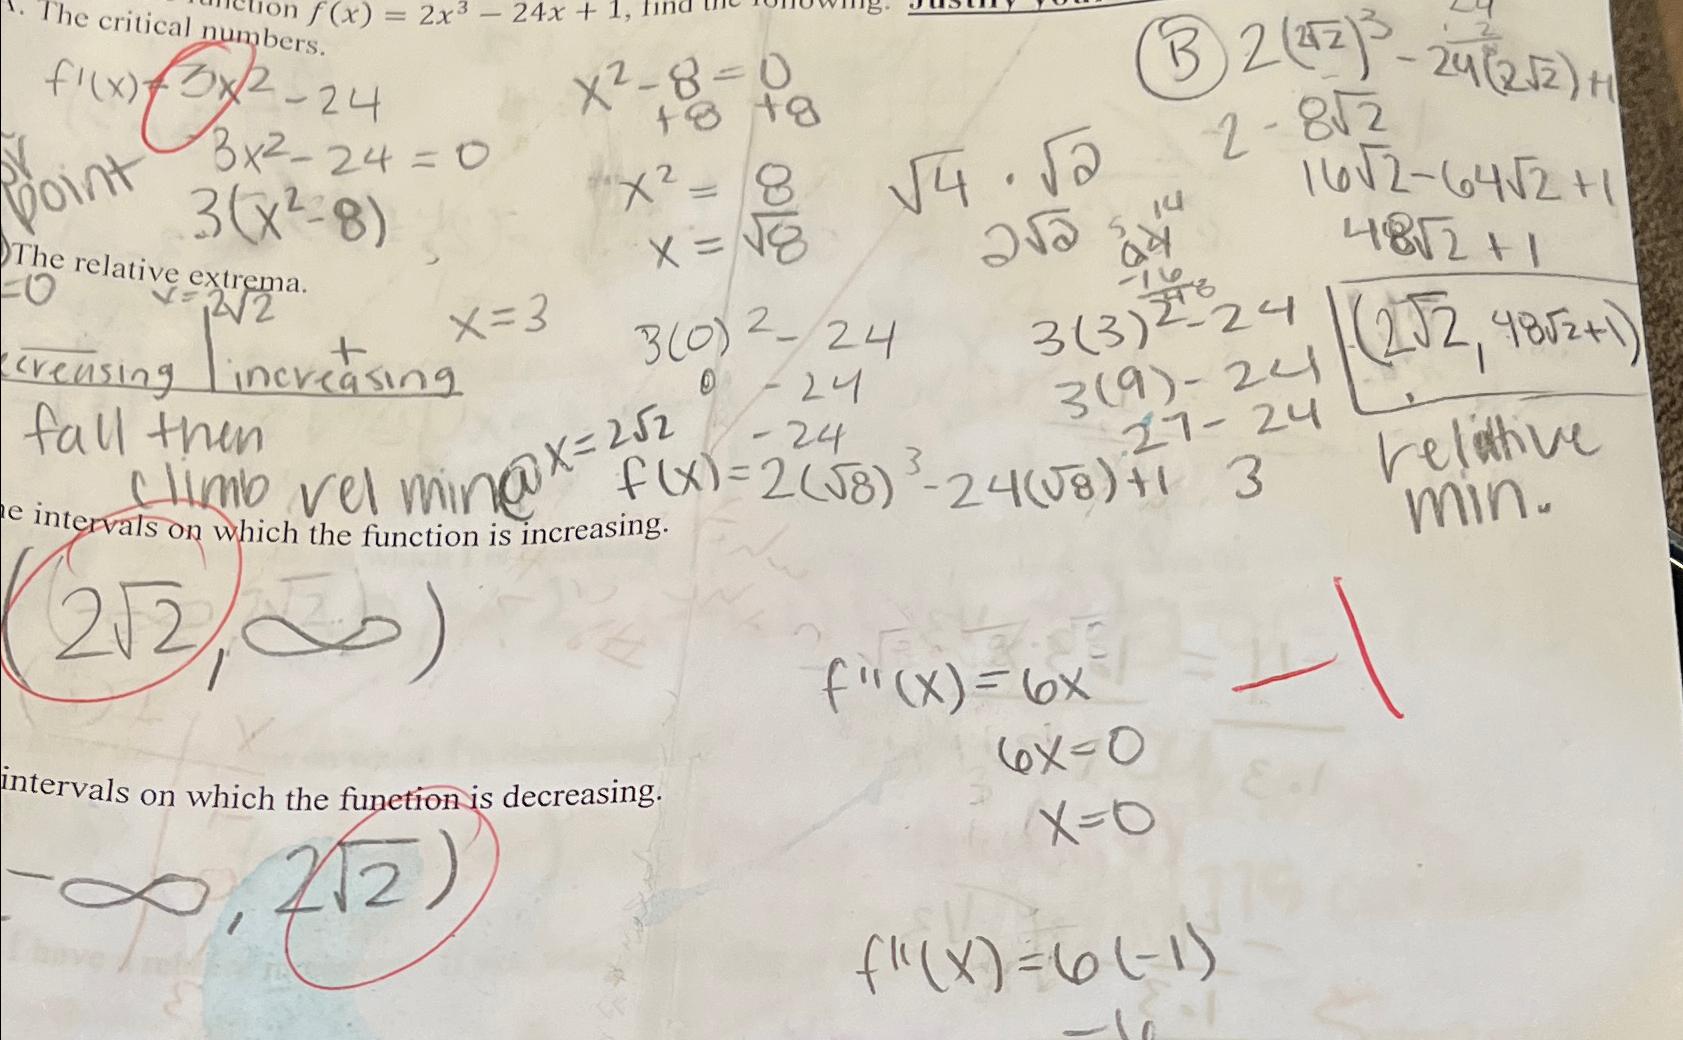 f(x) = 2x³ − 24x + 1, find the following.
The critical numbers.
f'(x) = 3x² - 24
3x² - 24 = 0
3(x² - 8)
point
x² - 8 = 0
+8 +8
x² = 8
x = √8
√4 · √2
2√2
B 2(2√2)³ - 24(2√2) + 1
2 - 8√2
16√2 - 64√2 + 1
48√2 + 1
(2√2, 48√2+1)
relative
min.
The relative extrema.
=0 x = 2√2
x = 3
+
increasing
fall then
climb rel min @ x = 2√2
3(0)² - 24
0 - 24
- 24
3(3)² - 24
3(9) - 24
27 - 24
3
f(x) = 2(√8)³ - 24(√8) + 1
intervals on which the function is increasing.
(2√2, ∞)
f''(x) = 6x
6x = 0
x = 0
-1
intervals on which the function is decreasing.
-∞, 2√2)
f''(x) = 6(-1)